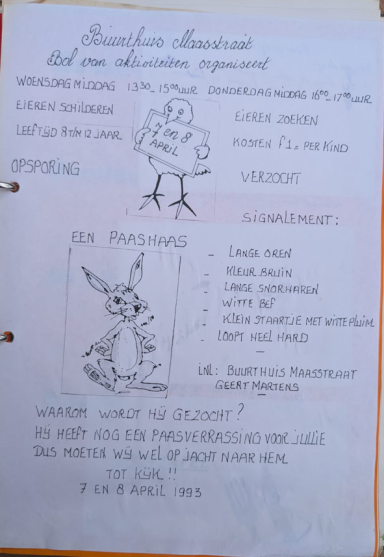 Buurthuis Maasstraat
Bol van aktiviteiten organiseert
WOENSDAGMIDDAG 13.30 - 15.00 UUR DONDERDAGMIDDAG 16.00 - 17.00 UUR
EIEREN SCHILDEREN
EIEREN ZOEKEN
LEEFTIJD 8 T/M 12 JAAR
KOSTEN f 1,= PER KIND
7 EN 8
APRIL
OPSPORING
VERZOCHT
SIGNALEMENT:
EEN PAASHAAS
- LANGE OREN
- KLEUR BRUIN
- LANGE SNORHAREN
- WITTE BEF
- KLEIN STAARTJE MET WITTE PLUIM
- LOOPT HEEL HARD
INL: BUURTHUIS MAASSTRAAT
GEERT MARTENS
WAAROM WORDT HIJ GEZOCHT?
HIJ HEEFT NOG EEN PAASVERRASSING VOOR JULLIE
DUS MOETEN WIJ WEL OP JACHT NAAR HEM
TOT KIJK!!
7 EN 8 APRIL 1993